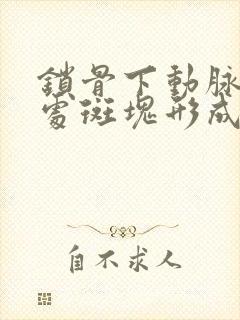 鎖骨下動脉
處斑塊形成
自不求人